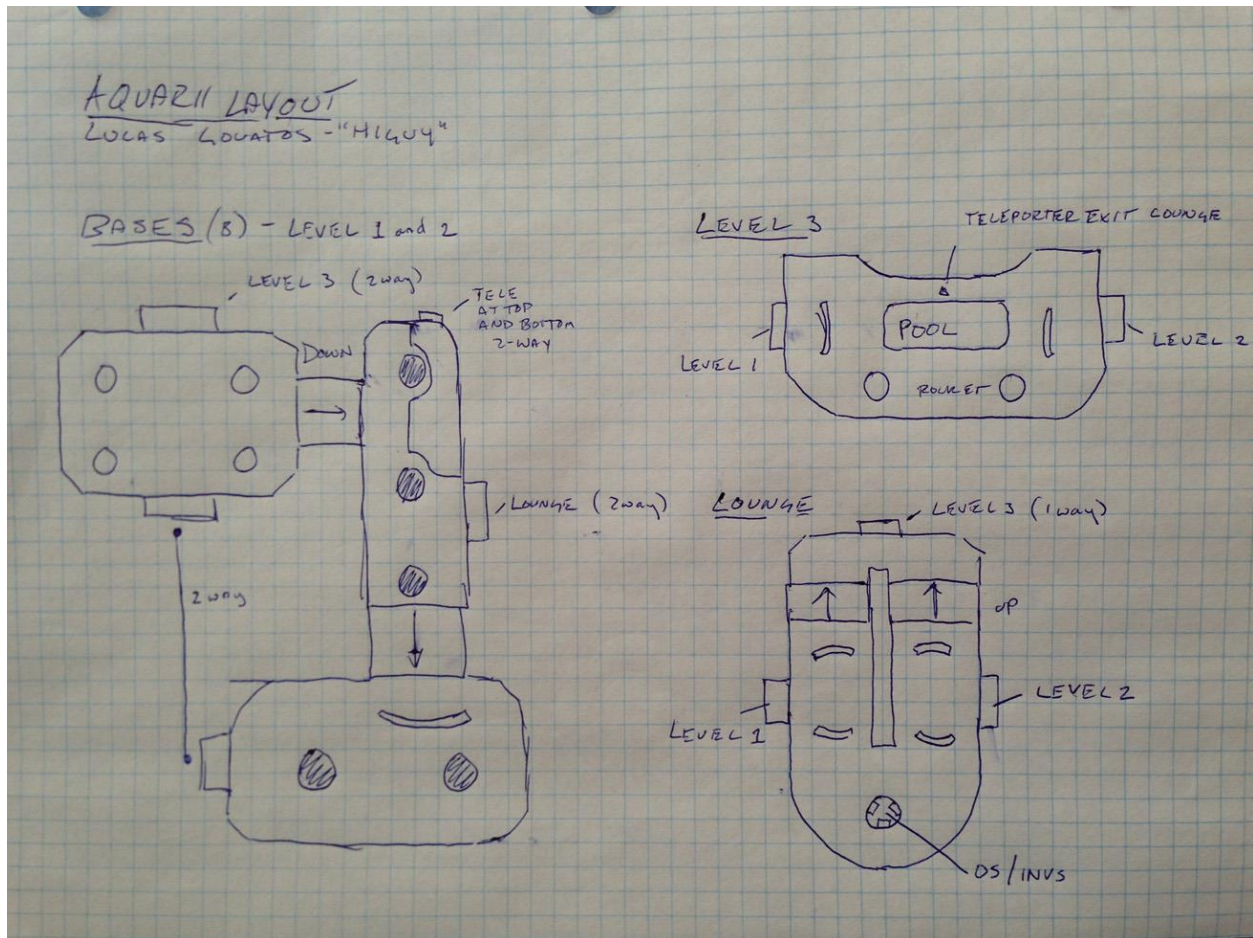 AQUARII LAYOUT
LUCAS GOVATOS - "HIGUY"
BASES (B) - LEVEL 1 and 2
LEVEL 3 (2way)
TELE
AT TOP
AND BOTTOM
2-WAY
DOWN
LOUNGE (2way)
2way
LEVEL 3
TELEPORTER EXIT LOUNGE
POOL
LEVEL 1
LEVEL 2
ROCKET
LOUNGE
LEVEL 3 (1way)
UP
LEVEL 1
LEVEL 2
OS/INVS